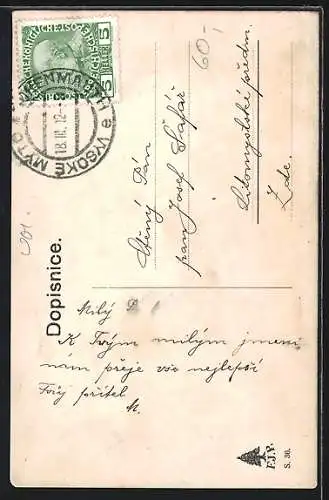 5 HELLER 5
HOHENMAUTH * VYSOKÉ MÝTO
18.III.12
60,-
201.
Dopisnice.
Ctěný Pán
pan Josef Šafář
Litomyšlské předm.
Zde.
Milý
K Tvým milým jmeni
nám přeje vše nejlepší
Tvůj přítel
F.J.P.
S. 30.